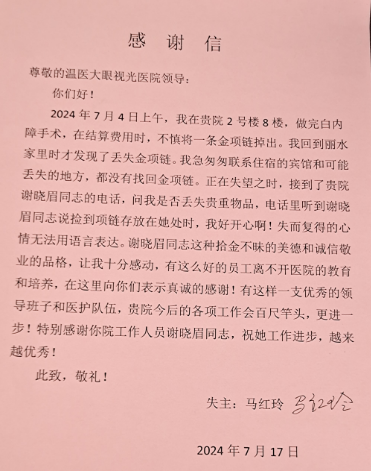 感谢信
尊敬的温医大眼视光医院领导：
你们好！
2024年7月4日上午，我在贵院2号楼8楼，做完白内
障手术，在结算费用时，不慎将一条金项链掉出。我回到丽水
家里时才发现了丢失金项链。我急匆匆联系住宿的宾馆和可能
丢失的地方，都没有找回金项链。正在失望之时，接到了贵院
谢晓眉同志的电话，问我是否丢失贵重物品，电话里听到谢晓
眉同志说捡到项链存放在她处时，我好开心啊！失而复得的心
情无法用语言表达。谢晓眉同志这种拾金不昧的美德和诚信敬
业的品格，让我十分感动，有这么好的员工离不开医院的教育
和培养，在这里向你们表示真诚的感谢！有这样一支优秀的领
导班子和医护队伍，贵院今后的各项工作会百尺竿头，更进一
步！特别感谢你院工作人员谢晓眉同志，祝她工作进步，越来
越优秀！
此致，敬礼！
失主：马红玲 马红玲
2024年7月17日